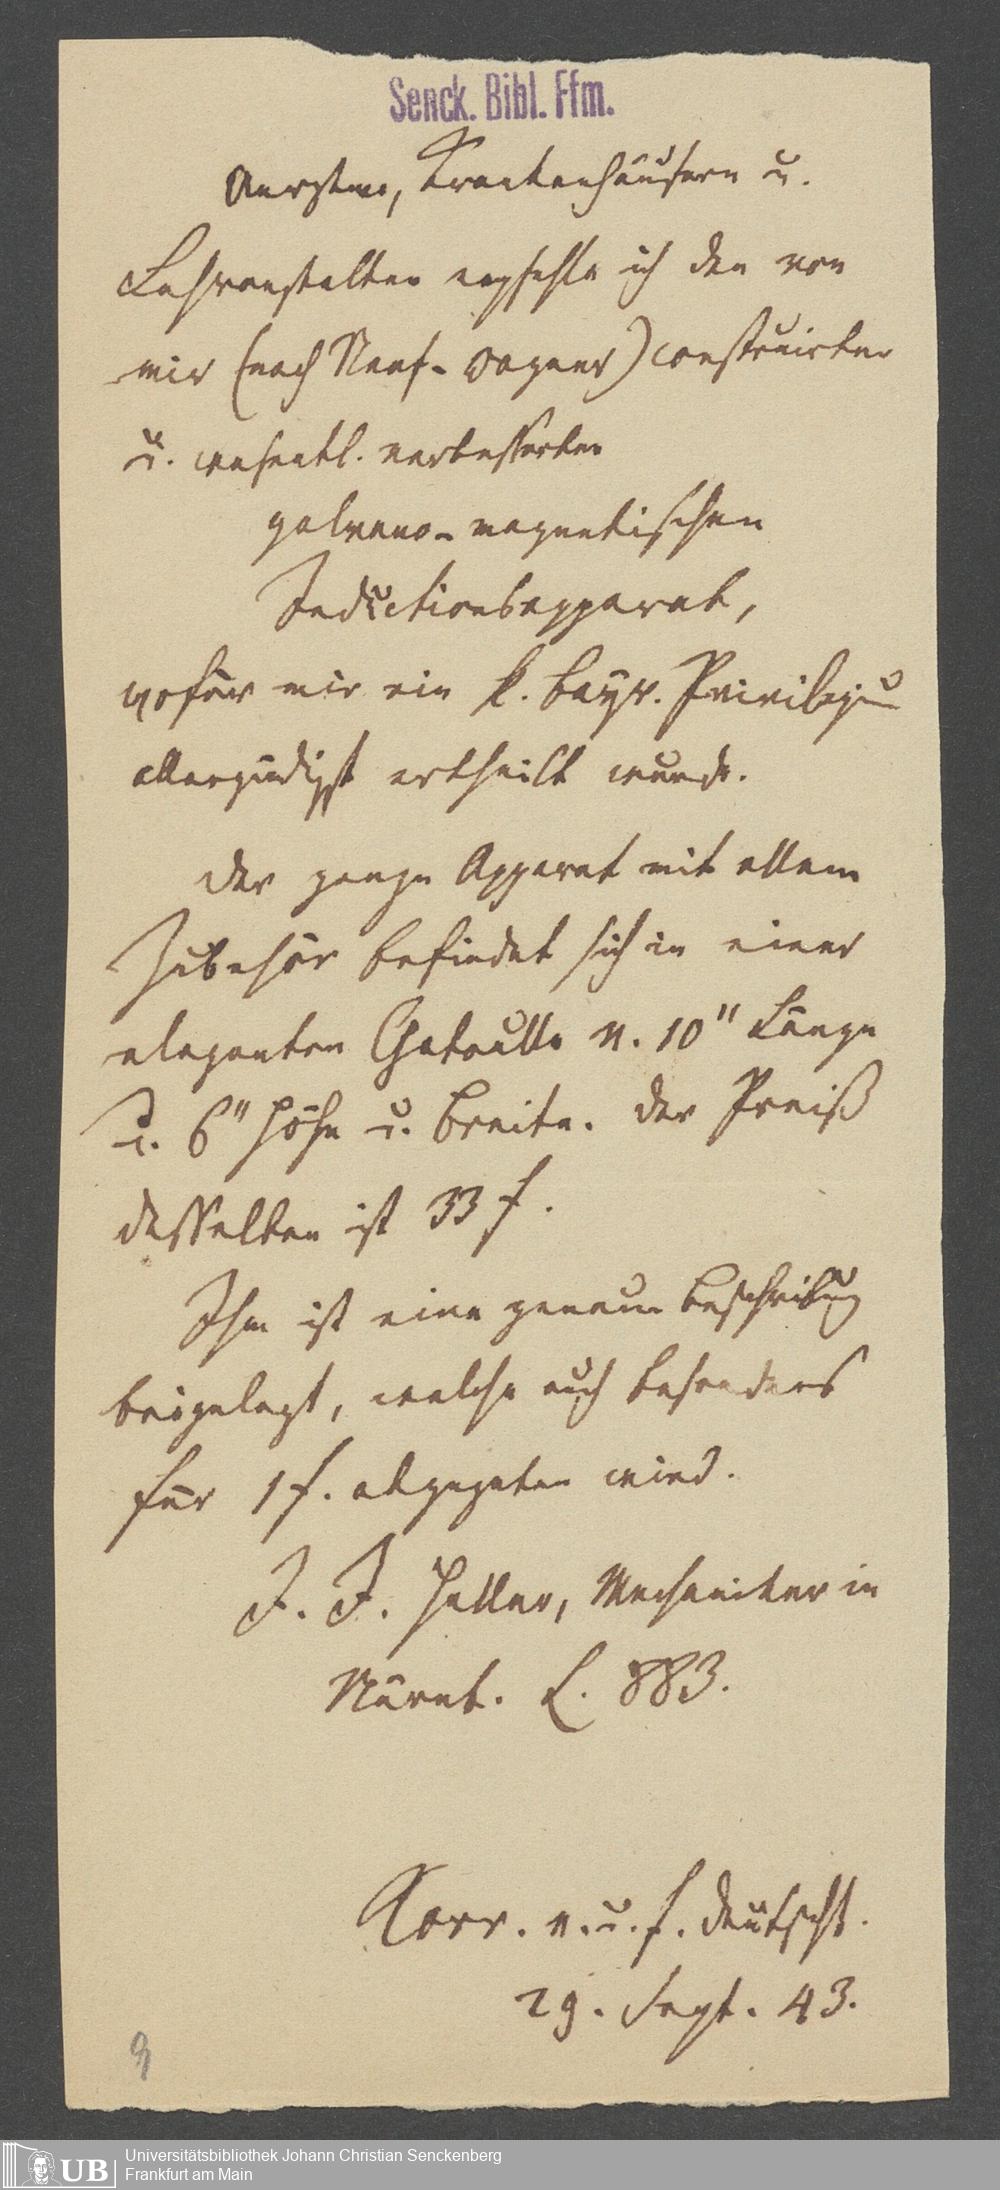 Senck. Bibl. Ffm.
Aerzten, Krankenhäusern u.
Lehranstalten empfehle ich den von
mir (nach Neef-Wagner) construirten
u. wesentl. verbesserten
galvano-magnetischen
Inductionsapparat,
wofür mir ein k. bayr. Privilegiu
allergnädigst ertheilt wurde.
Der ganze Apparat mit allem
Zubehör befindet sich in einer
eleganten Chatoulle v. 10" Länge
u. 6" Höhe u. Breite. Der Preiß
desselben ist 33 f.
Ihm ist eine genaue Beschreibug
beigelegt, welche auch besonders
für 1 f. abgegeben wird.
J. J. Heller, Mechaniker in
Nürnb. L. 883.
Korr. v. u. f. Deutschl.
29. Sept. 43.
9
UB
Universitätsbibliothek Johann Christian Senckenberg
Frankfurt am Main